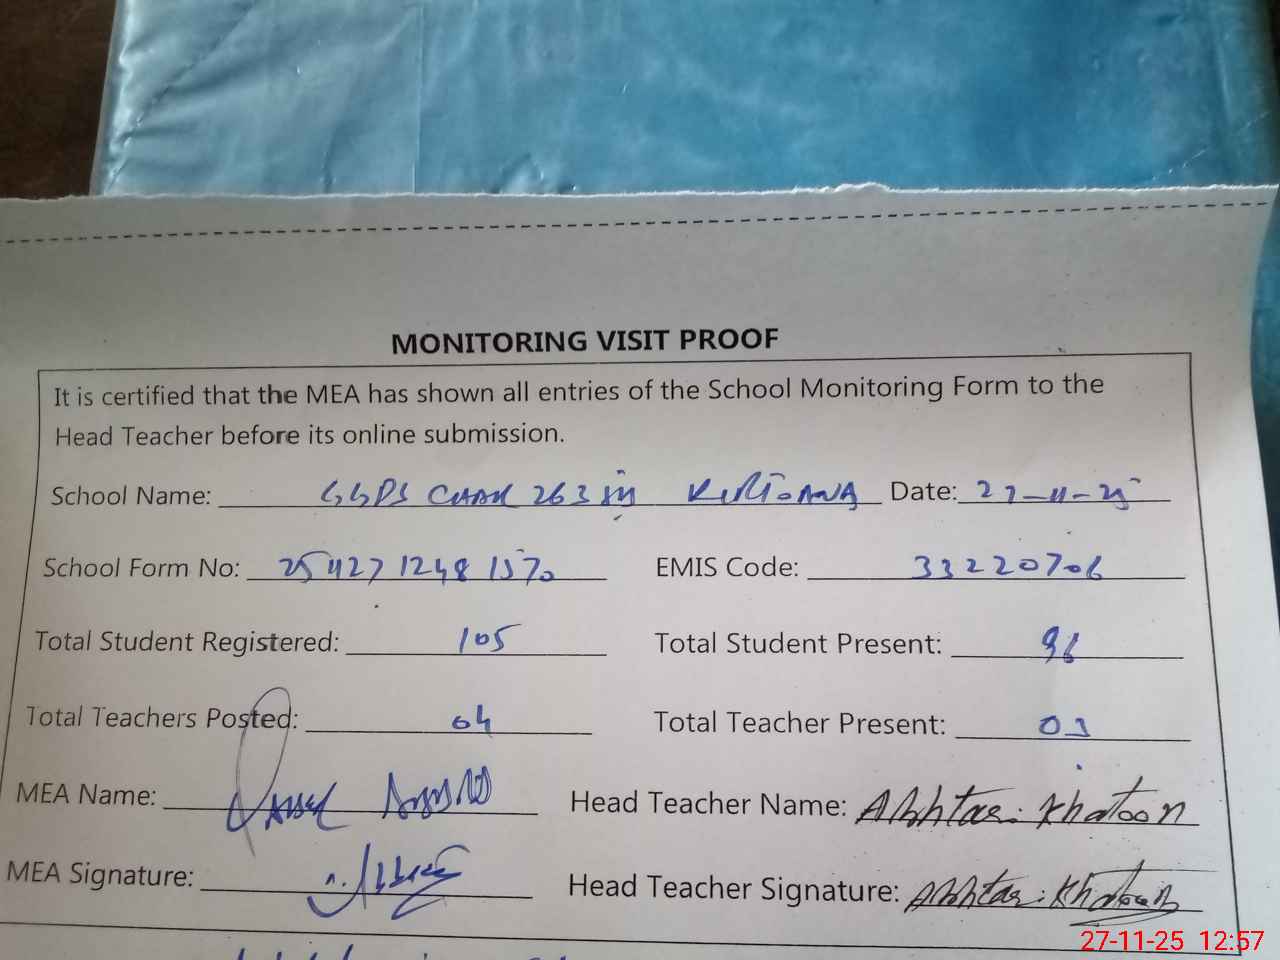 MONITORING VISIT PROOF
It is certified that the MEA has shown all entries of the School Monitoring Form to the
Head Teacher before its online submission.
School Name: GGPS CHAK 263 Date: 27-11-25
School Form No: 2541271248 1570 EMIS Code: 33220706
Total Student Registered: 105 Total Student Present: 96
Total Teachers Posted: 04 Total Teacher Present: 03
MEA Name: Head Teacher Name: Akhtar Khatoon
MEA Signature: Head Teacher Signature: Akhtar Khatoon
27-11-25 12:57